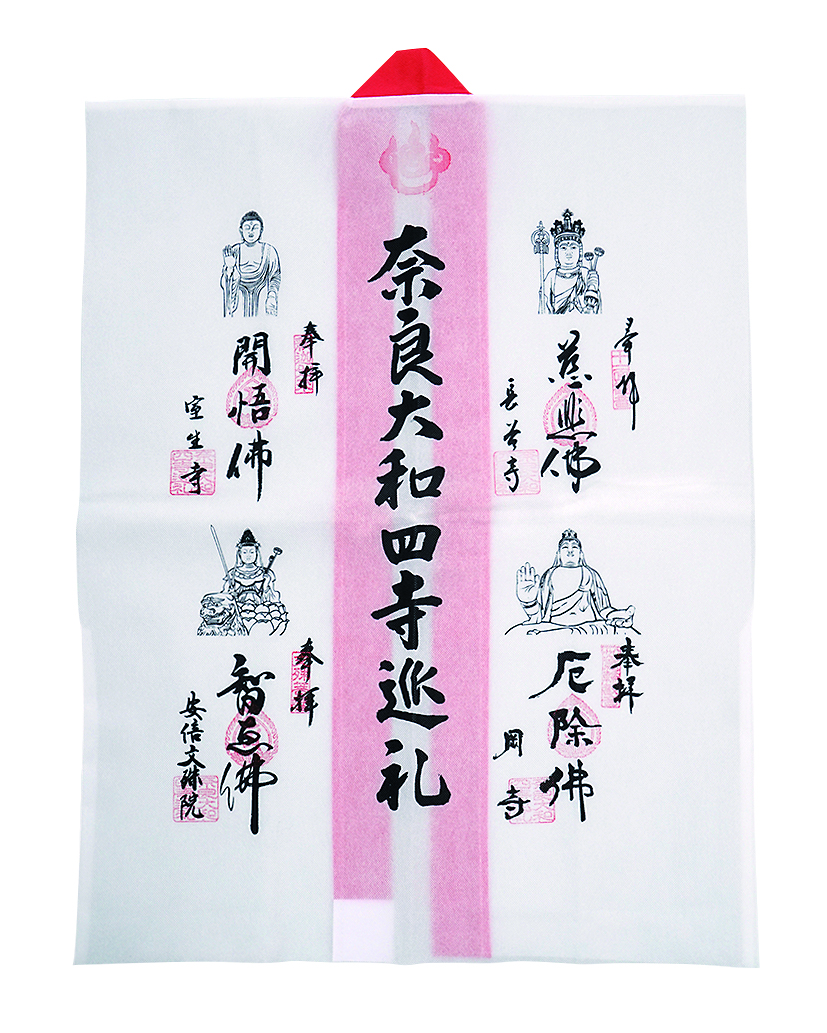 奈良大和四寺巡礼
奉拝
慈悲佛
長谷寺
奉拝
厄除佛
岡寺
奉拝
開悟佛
室生寺
奉拝
智恵佛
安倍文殊院